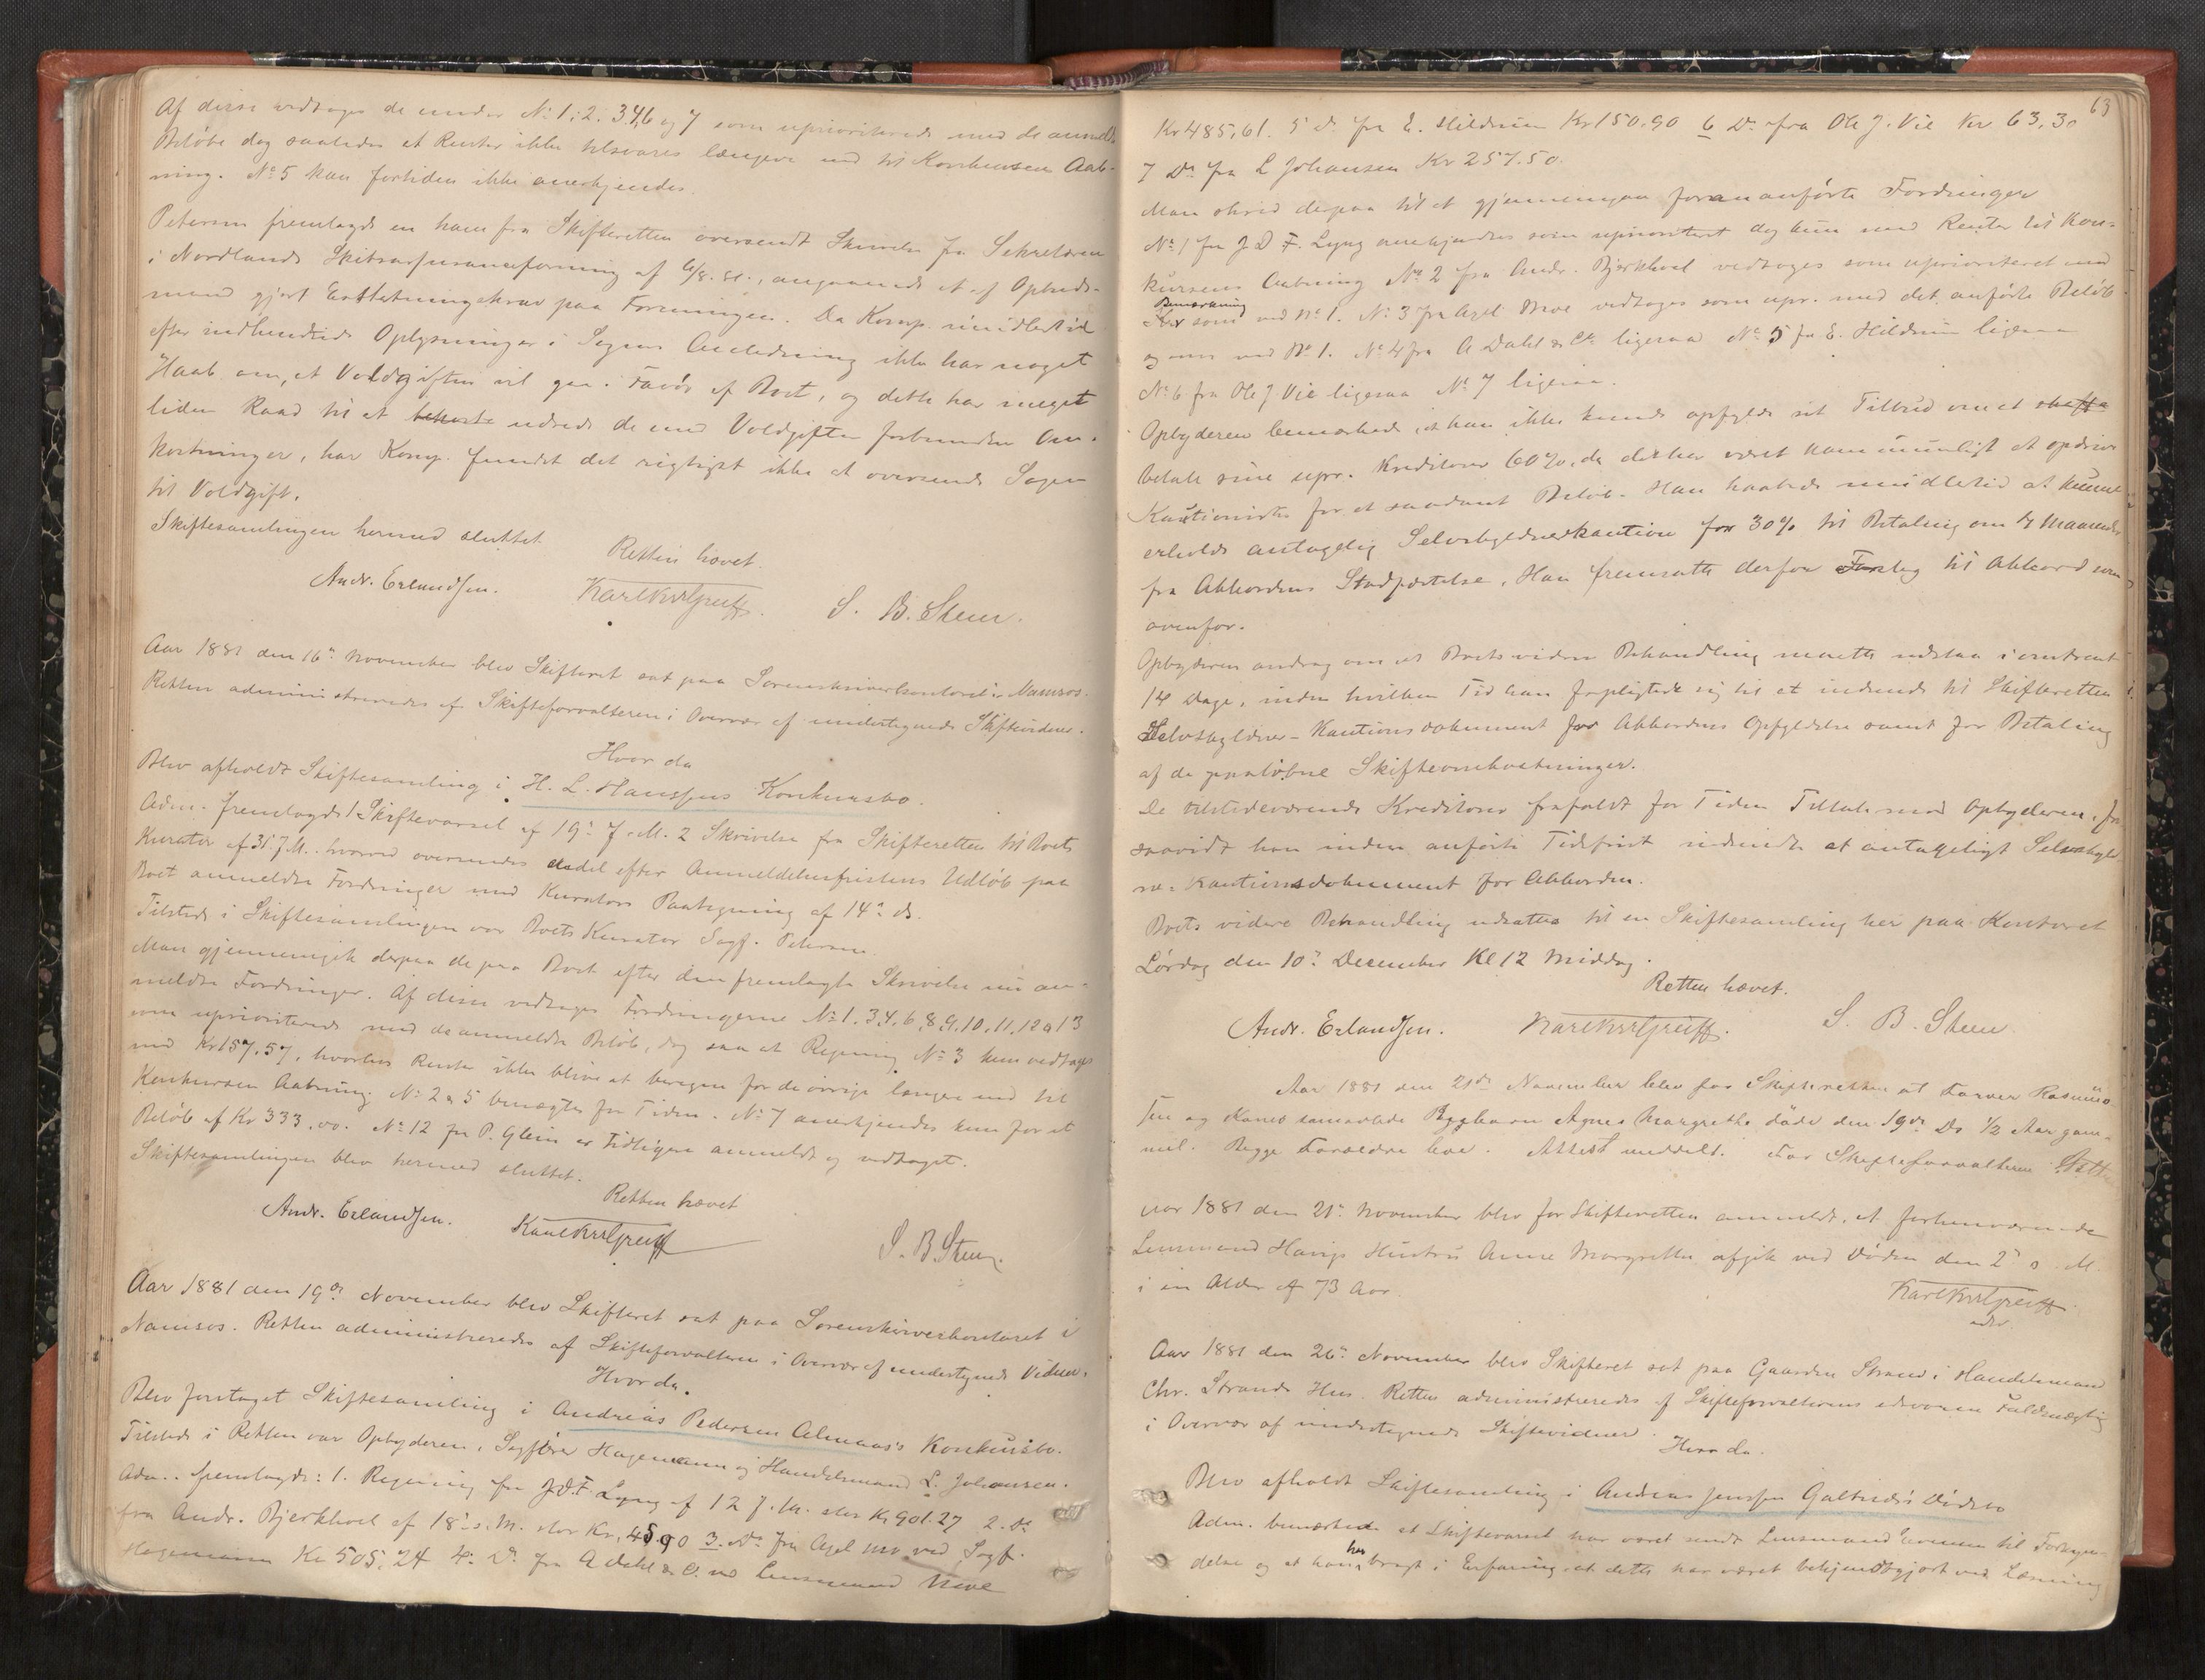 Af disse vedtoges de under No 1, 2. 3.4,6 og 7 som uprioriterede med de anmeldte
Beløbe dog saaledes at Renter ikke tilsvares længere end til Konkursens Aab-
ning. No 5 kan fortiden ikke anerkjendes.
Petersen fremlagde en ham fra Skifteretten oversendt Skrivelse fra Sekretæren
i Nordlands Skibsassuranceforening af 6/8. 81., angaaende et af Opbuds-
mand gjort Erstatningskrav paa Foreningen. Da Komp. imidlertid
efter indhentede Oplysninger i Sagens Anledning ikke har noget
Haab om, at Voldgiften vil gaa i Favør af Boet, og dette har meget
liden Raad til at bekoste udrede de med Voldgiften forbundne Om-
kostninger, har Komp. fundet det rigtigst ikke at oversende Sagen
til Voldgift.
Skiftesamlingen hermed sluttet.
Retten hævet.
Andr. Erlandsen.
S. B. Steen.
Aar 1881 den 16de November blev Skifteret sat paa Sorenskriverkontoret i Namsos.
Retten administreredes af Skifteforvalteren i Overvær af undertegnede Skiftevidner.
Hvor da
Blev afholdt Skiftesamling i H. L. Hanssens Konkursbo.
Adm. fremlagde 1 Skiftevarsel af 19de f. M. 2 Skrivelse fra Skifteretten til Boets
Kurator af 31 f. M. hvorved oversendes endel efter Anmeldelsesfristens Udløb paa
Boet anmeldte Fordringer med Kurators Paategning af 14de ds.
Tilstede i Skiftesamlingen var Boets Kurator Sagf. Petersen.
Man gjennemgik derpaa de paa Boet efter den fremlagte Skrivelse nu an-
meldte Fordringer. Af disse vedtoges Fordringerne No 1. 3,4, 6, 8, 9, 10, 11, 12 & 13
som uprioriterede med de anmeldte Beløb, dog saa at Regning No 3 kun vedtoges
med Kr 157.57, hvorhos Renter ikke blive at beregne for de øvrige længere end til
Konkursens Aabning. No 2 & 5 benegtes for Tiden. No 7 anerkjendes kun for et
Beløb af Kr 333.00. No 12 fra P. Glein er tidligere anmeldt og vedtaget.
Skiftesamlingen blev hermed sluttet.
Retten hævet
Andr. Erlandsen.
S. B. Steen.
Aar 1881 den 19de November blev Skifteret sat paa Sorenskriverkontoret i
Namsos. Retten administreredes af Skifteforvalteren i Overvær af undertegnede Vidner.
Hvor da.
Blev foretaget Skiftesamling i Andreas Pedersen Almaas's Konkursbo.
Tilstede i Retten var Opbyderen, Sagfører Hagemann og Handelsmand L. Johansen.
Adm. fremlagde: 1. Regning fra J. D. F. Lyng af 12 f. M. stor Kr 901.27 2. Do
fra Andr. Bjerkhoel af 18de s. M. stor Kr. 3. Do fra Axel Moe ved Sagf.
Hagemann Kr 505.24 4. Do fra A Dahl & Co. ved Lensmand Moe
63
Kr 485,61. 5 Do fra E. Hildrum Kr 150.90 6 Do fra Ole J. Vie Kr 63,30
7 Do fra L Johansen Kr 257.50.
Man skred derpaa til at gjennemgaa forananførte Fordringer
No 1 fra J D F. Lyng anerkjendtes som uprioriteret dog kun med Renter til Kon-
kursens Aabning No 2 fra Andr. Bjerkhoel vedtoges som uprioriteret med
Bemærkning som ved No 1. No 3 fra Axel Moe vedtoges som upr. med det anførte Beløb
og som ved No 1. No 4 fra A Dahl & Co ligesaa No 5 fra E. Hildrum ligesaa
No 6 fra Ole J Vie ligesaa No 7 ligesaa.
Opbyderen bemærkede, at han ikke kunde opfylde sit Tilbud om at skaffe
betale sine upr. Kreditorer 60%, da det har været ham umuligt at opdrive
Kautionister for et saadant Beløb. Han haabede imidlertid at kunne
erholde antagelig Selvskyldnerkaution for 30% til Betaling om 4 Maaneder
fra Akkordens Stadfæstelse. Han fremsatte derfor Forslag til Akkord som
ovenfor.
Opbyderen androg om at Boets videre Behandling maatte udstaa i omtrent
14 Dage, inden hvilken Tid han forpligtede sig til at indsende til Skifteretten
Selvskyldner-Kautionsdokument for Akkordens Opfyldelse samt for Betaling
af de paaløbne Skifteomkostninger.
De tilstedeværende Kreditorer frafaldt for Tiden Tiltale mod Opbyderen, for-
saavidt han inden anførte Tidsfrist indsendte et antageligt Selvskyld-
ner-Kautionsdokument for Akkorden.
Boets videre Behandling udsattes til en Skiftesamling her paa Kontoret
Lørdag den 10de December Kl 12 Middag.
Retten hævet.
Andr. Erlandsen.
S. B. Steen
Aar 1881 den 21de November blev for Skifteretten at Farver Rasmus-
sen og Kones samavlede Pigebarn Agnes Margrethe døde den 19de Ds 1/2 Aar gam-
mel. Begge Forældre leve. Attest meddelt. For Skifteforvalteren
Aar 1881 den 21de November blev for Skifteretten anmeldt, at forhenværende
Lensmand Havigs Hustru Anne Margrethe afgik ved Døden den 2de s. M.
i en Alder af 73 Aar.
Aar 1881 den 26de November blev Skifteret sat paa Gaarden Strand i Handelsmand
Chr. Strands Hus. Retten administreredes af Skifteforvalterens edsvorne Fuldmægtig
i Overvær af undertegnede Skiftevidner.
Hvor da.
Blev afholdt Skiftesamling i Andreas Jenssen Galtnds's Dødsbo
Adm. bemærkede at Skiftevarsel har været sendt Lensmand til Forkyn-
delse og at han har bragt i Erfaring at dette har været bekjendtgjort ved Læsning